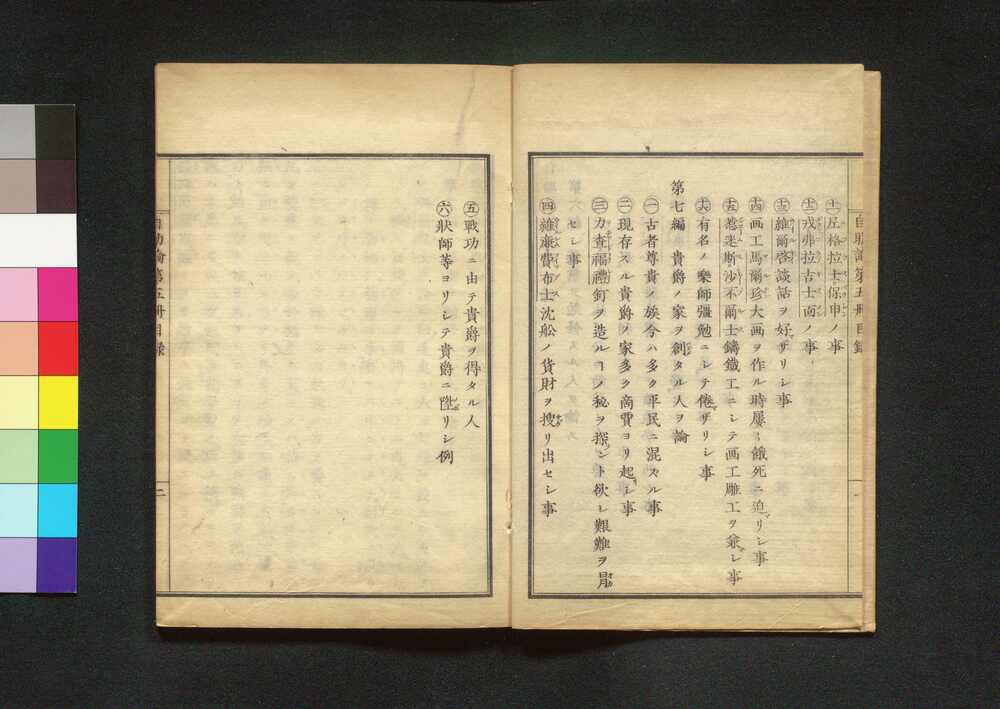 自助論第五冊目錄
㊉一 尼格拉士保申ノ事
㊉二 戎弗拉古士曼ノ事
㊉三 維爾啓談話ヲ好ザリシ事
㊉四 画工馬爾珍大画ヲ作ル時屢〻餓死ニ迫リシ事
㊉五 惹迷斯沙不爾士鑄鐵工ニシテ画工雕工ヲ兼シ事
㊉六 有名ノ樂師彊勉ニシテ倦ザリシ事
第七編 貴爵ノ家ヲ創タル人ヲ論
㊀ 古者尊貴ノ族今ハ多ク平民ニ混スル事
㊁ 現存スル貴爵ノ家多ク商賈ヨリ起シ事
㊂ 力查福禮釘ヲ造ルヿノ秘ヲ探ント欲シ艱難ヲ冐
セシ事
㊃ 維廉費布士沈舩ノ貨財ヲ搜リ出セシ事
㊄ 戰功ニ由テ貴爵ヲ得タル人
㊅ 狀師等ヨリシテ貴爵ニ陞リシ例
自助論第五冊目錄
二